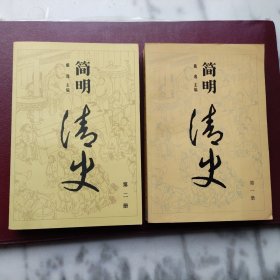 简明
戴逸 主编
清史
第二册
简明
戴逸 主编
清史
第一册